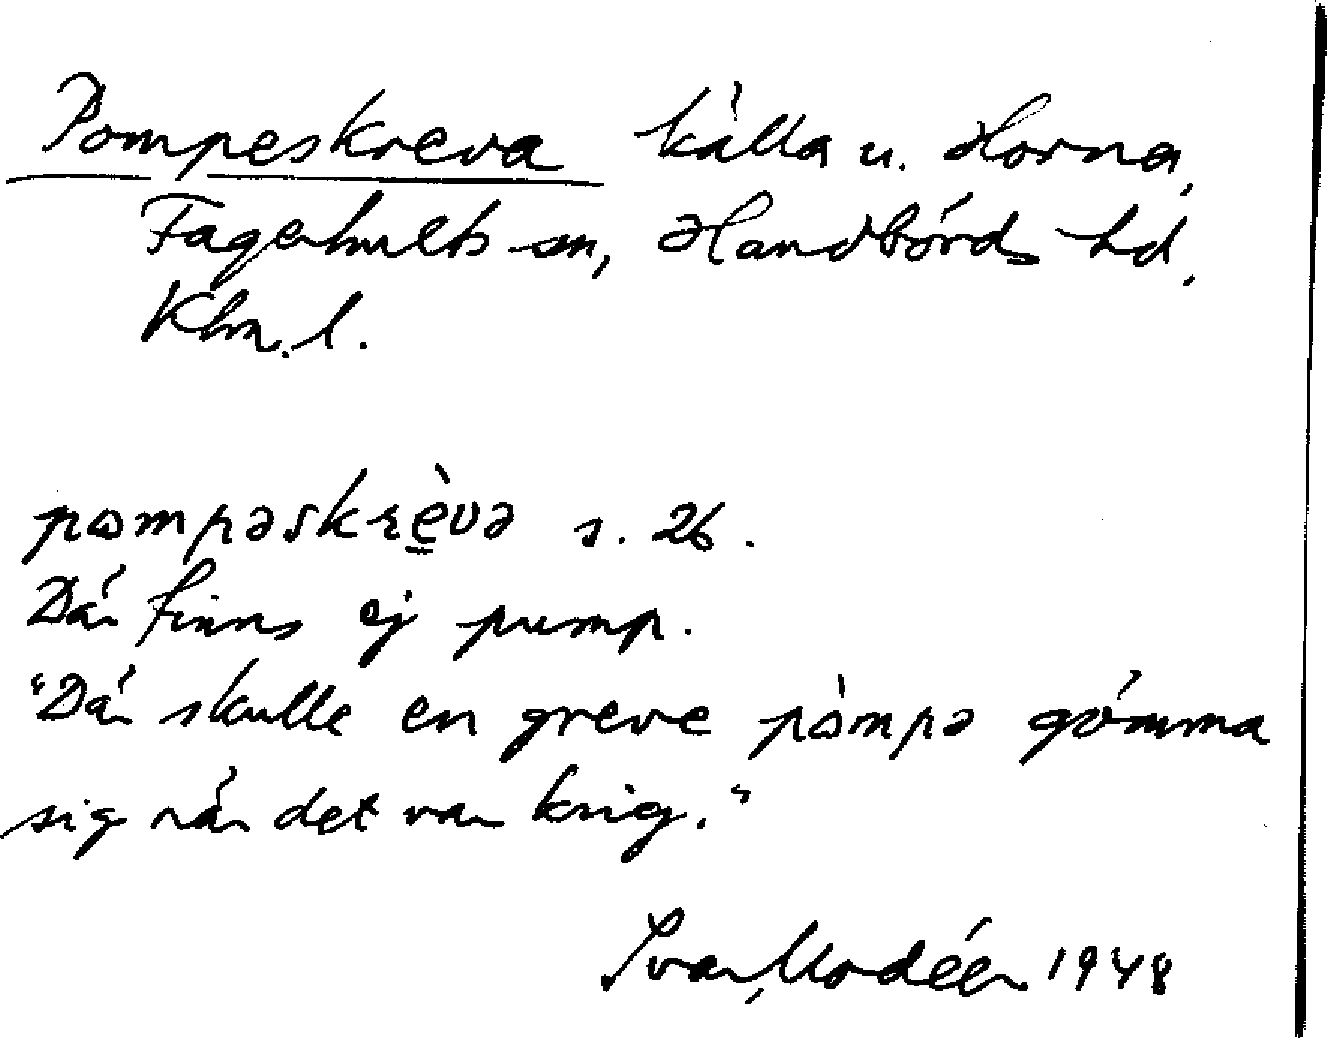 Pompeskreva källa u. Horna,
Fagerhults sn, Handbörds hd,
Klm. l.
pɷmpəskrèvə s. 26.
Där finns ej pump.
"Där skulle en greve pɷ̀mpə gömma
sig när det var krig."
Ivar Modéer 1948